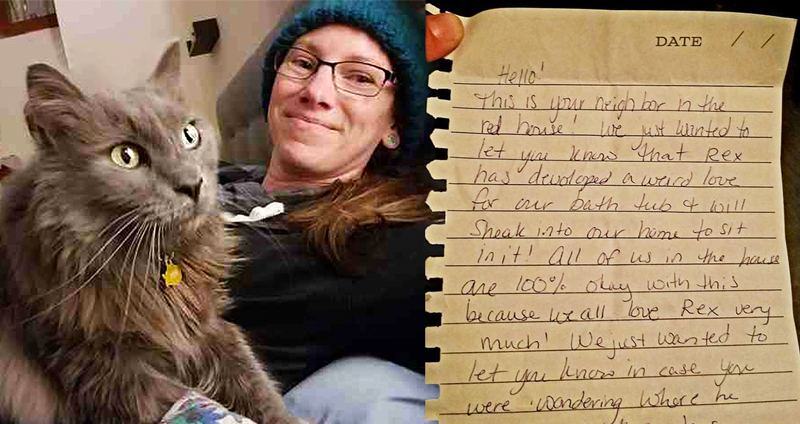 DATE / /
Hello!
This is your neighbor in the
red house! We just wanted to
let you know that Rex
has devoloped a weird love
for our bath tub & will
Sneak into our home to sit
in it! All of us in the house
are 100% okay with this
because we all love Rex very
much! We just wanted to
let you know in case you
were wondering where he